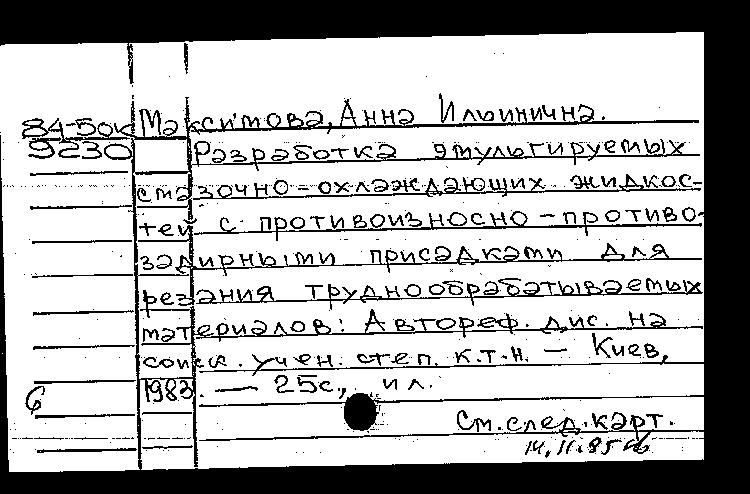 84-50к Максимова, Анна Ильинична.
9230 Разработка эмульгируемых
смазочно-охлаждающих жидкос-
тей с противоизносно-противо-
задирными присадками для
резания труднообрабатываемых
материалов: Автореф. дис. на
соиск. учен. степ. к.т.н. — Киев,
1983. — 25с., ил.
6
См. след. карт.
14.11.85